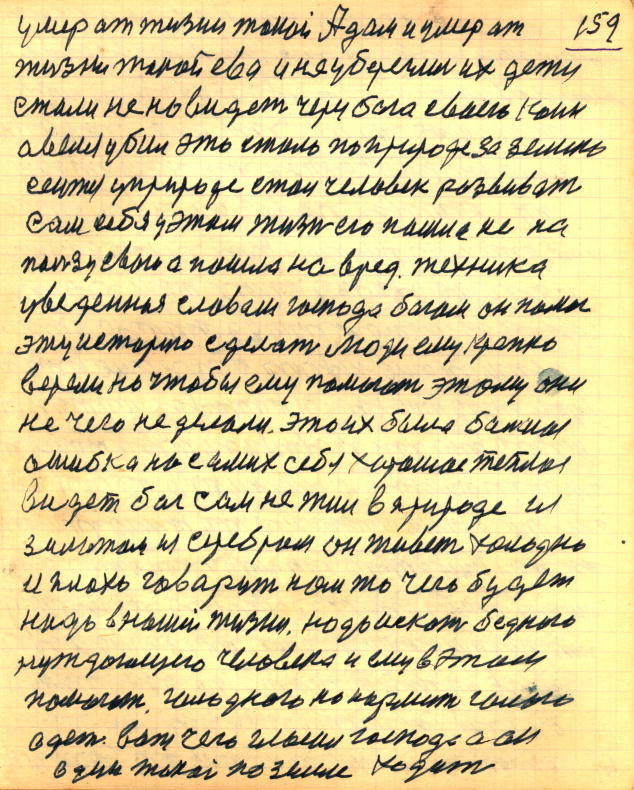 умерат жизни такой Адам и умерат 159
жизни такой ева и неуберегли их дети
стали не новидет через бога своего Каин
авеля убил это стало по природе за землю
сели у природе стал человек розвиват
сам себя у этом жизн его пошла не на
ползу своего а пошла на вред. техника
уведенная словам господа богом он помог
эту историю сделат Люди ему крепко
верели но чтобы ему помогат этому они
не чего не делали. это их была бажия
ошибка на самих себя хорошае теплае
видет бог сам не жил в природе
золотам и серебром он живет холодно
и плохо говарит нам то чего будет
надь в нашей жизни. надь искат бедного
нуждающего человека и ему в этом
помогат. голодного накармит голого
одет. вот чего господа а он
один такой по земле ходит